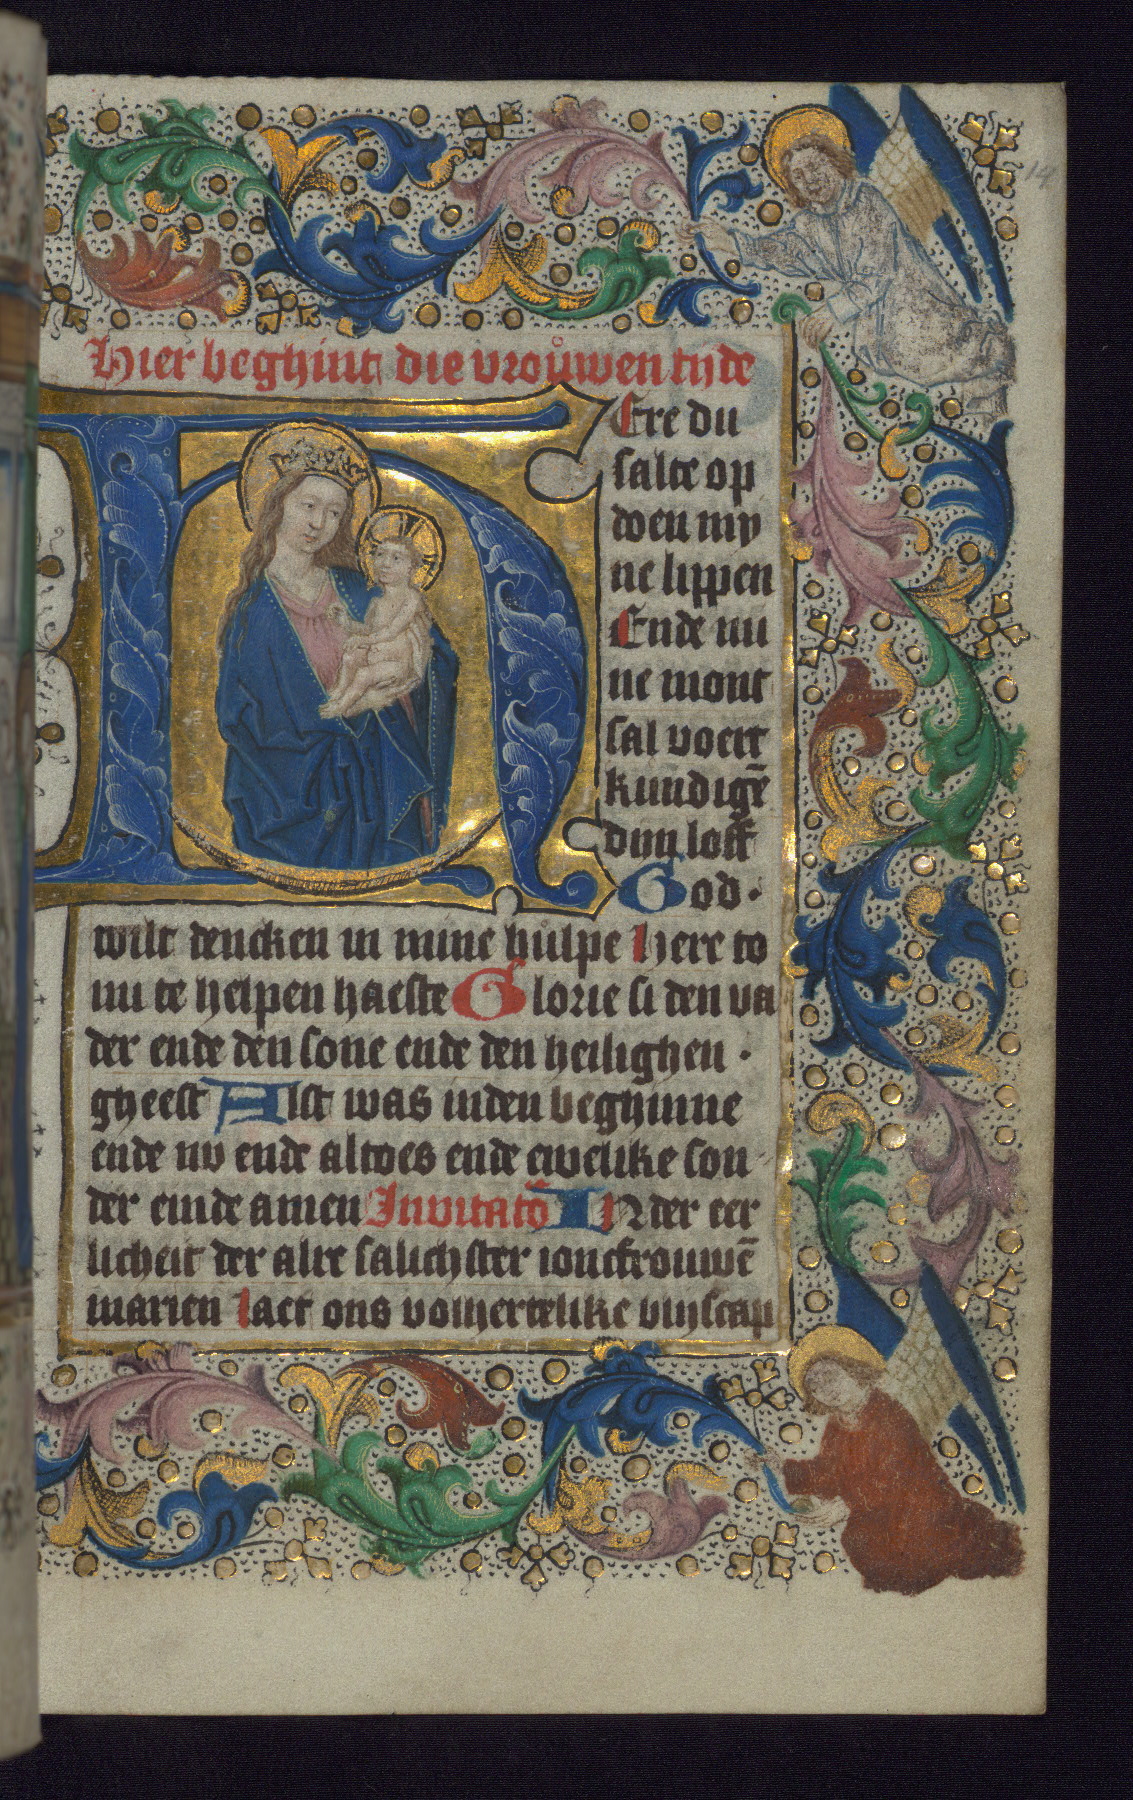 Hier beghint die vrouwen tyde
HEre du
salte op
doen my
ne lippen
Ende mi
ne mont
sal voert
kundigē
dyn loff
God·
wilt dencken in mine hulpe here to
mi te helpen haeste Glorie si den va
der ende den sone ende den heilighen ·
gheest Alst was inden beghinne
ende nv ende altoes ende ewelike son
der einde amen Invitatō IN der eer
licheit der alre salichster ioncfrouwē
marien laet ons volhertelike blyscap
14